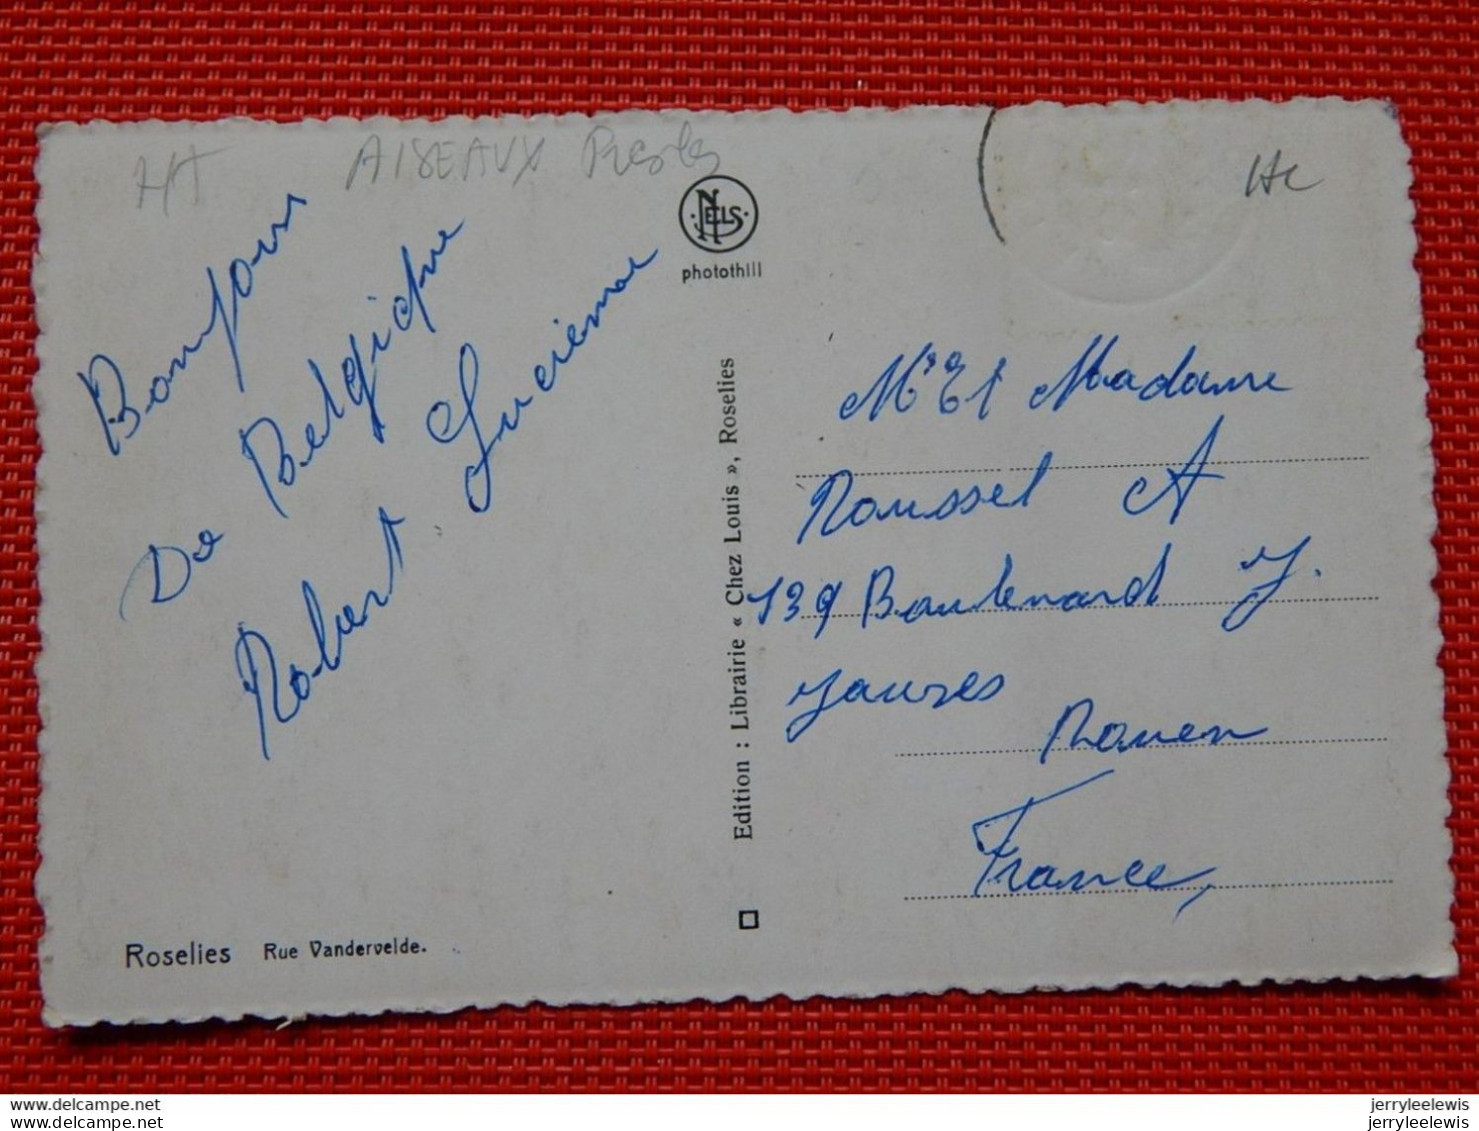 HT
AISEAUX
NELS
photothill
Hc
Bonjour
De Belgique
Robert Lucienne
Edition : Librairie « Chez Louis », Roselies
Mr Et Madame
Roussel A
139 Boulevard J.
Jaures
Rouen
France,
Roselies Rue Vandervelde.
www.delcampe.net
www.delcampe.net
jerryleelewis
jerryleelewis